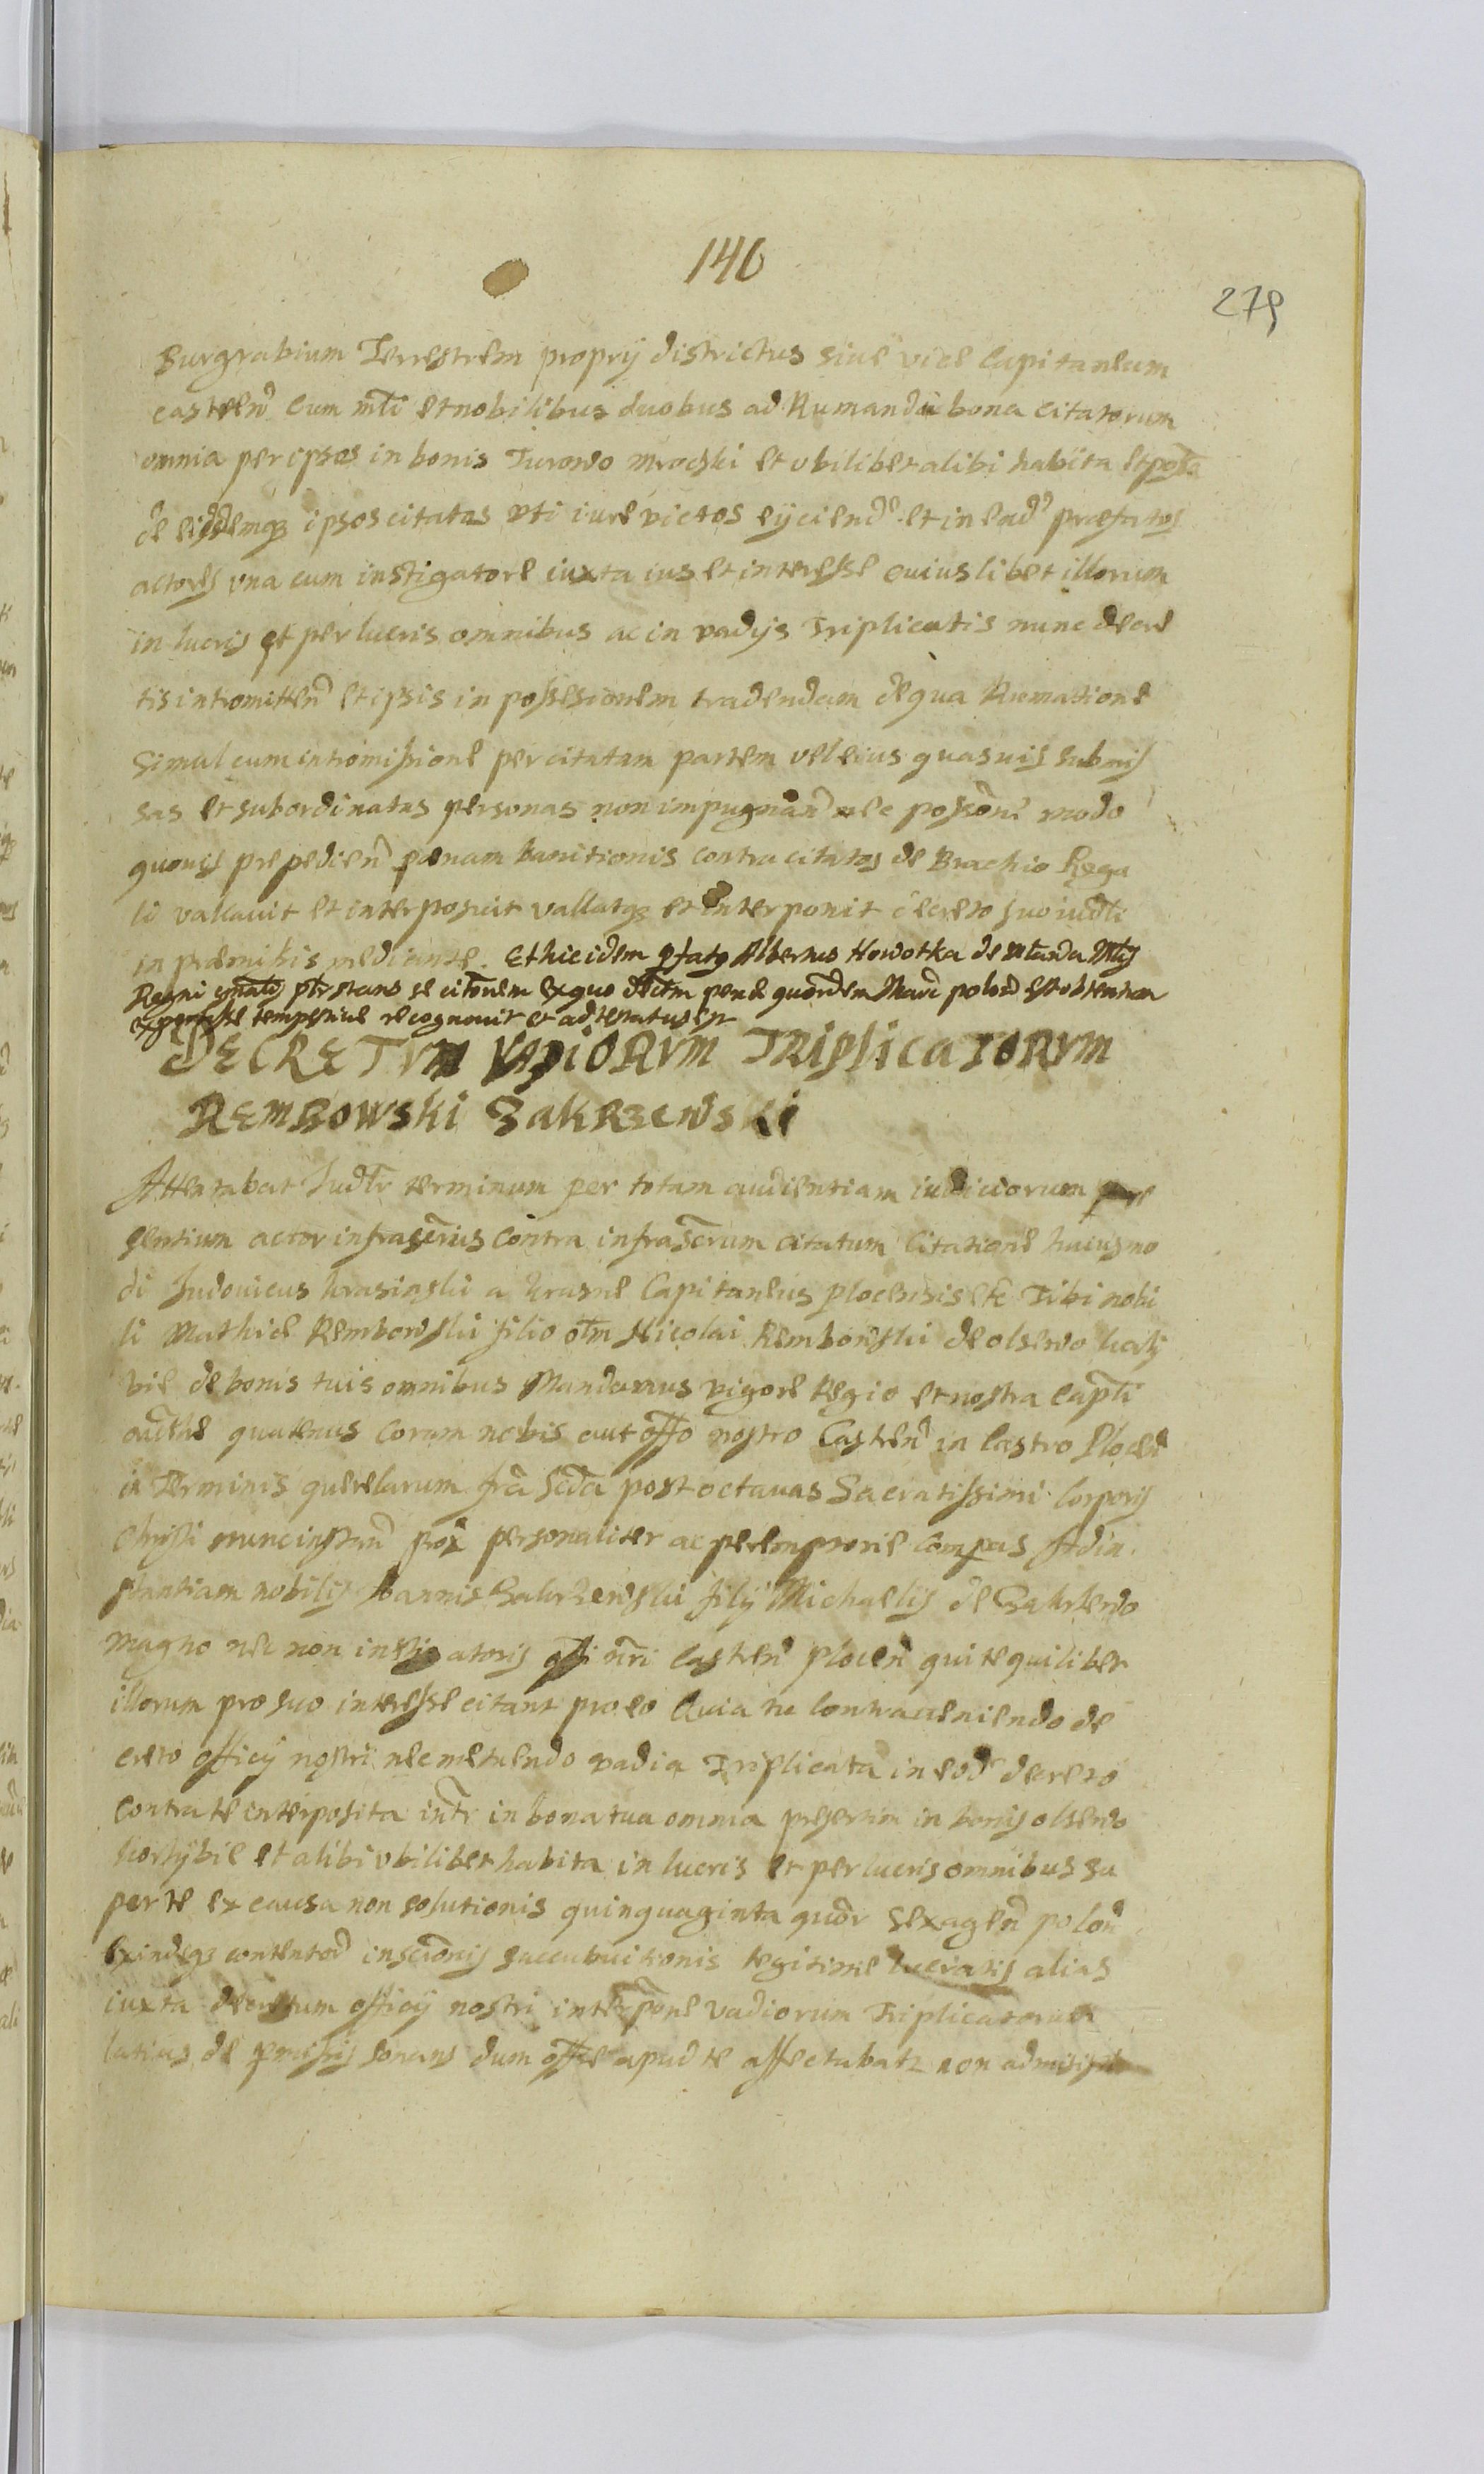 140
279
Burgrabium Terrestrem proprij districtus siue vice Capitaneum
castren cum mlti et nobilibus duobus ad Rumanda bona citatorum
omnia per ipsos in bonis Turowo Mroczki et vbilibet alibi habita et
de eisdemq ipsos citatos vti iure victos eijciend et in ead praefatos
actores vna cum instigatore iuxta ius et interesse cuiuslibet illorum
in lucris et perlucris omnibus ac in vadijs Triplicatis nunc decre
tis intromitten et ipsis in possesionem tradendam de qua Rumatione
simul cum intromissione per citatam partem vel eius quasuis submis
sas et subordinatas personas non impugnan nec possone modo
quouis prepedien poenam banitionis contra citatos de Brachio Rega
li vallauit et interposuit vallatq et interponit decreto suo iudtli
in praemissis mediante. Et hic idem pfatq Albertus Nowotka de
Regni gnalis se citonem ex quo dectm quordem Marc polon est obtentum
tempestiue recognouit et adtestatus est
DECRETVM VADIORVM TRIPlicaTORVM
REMBOWSki ZakRzewski
Attentabat Iudtlr terminum per totam audientiam iudiciorum pre
sentium actor infrascrius contra infrascrum citatum Citatione huiusmo
di Ludouicus Krasinski a Krasne Capitaneus plocensis etc Tibi nobi
li Mathiae Rembowski filio olim Nicolai Rembowski de olsewo
bie de bonis tuis omnibus Mandamus vigore Regio et nostra capti
aucthe quatenus coram nobis aut offo nostro Castren in Castro Plocen
in Terminis querelarum fria scda post octauas Sacratissimi Corporis
Christi nunc instan prox personaliter ac peremptorie compas Ad in
stantiam nobilis Ioannis Zakrzewski filij Michaelis de Zakrzewo
magno nec non instigatoris offi nri Castren plocen qui te quilibet
illorum pro suo interesse citant pro eo Quia tu contraueniendo de
creto officij nostri nec metuendo vadia Triplicata in eod decreto
contra te interposita intr in bona tua omnia presertim in bonis olsewo
et alibi vbilibet habita in lucris et perlucris omnibus su
per te ex causa non solutionis quinquaginta quor sexagen polon
exindeq contentor inscronis succubuitionis legitime lucratis alias
iuxta decretum officij nostri interpone vadiorum Triplicatorum
latius de pmissis sonans dum offle apud te affectabatr non admisisti